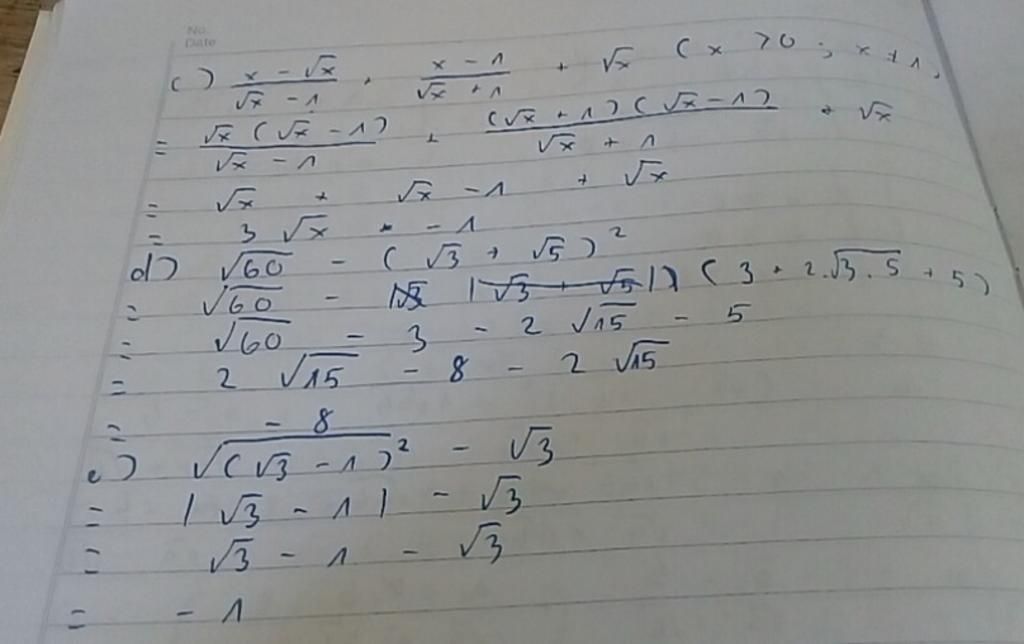 No.
Date
c) \frac{x - √x}{√x - 1} + \frac{x - 1}{√x + 1} + √x (x > 0 ; x ≠ 1)
= \frac{√x (√x - 1)}{√x - 1} + \frac{(√x + 1)(√x - 1)}{√x + 1} + √x
= √x + √x - 1 + √x
= 3 √x - 1
d) √60 - (√3 + √5)²
= √60 - (3 + 2.√(3.5) + 5)
= √60 - 3 - 2 √15 - 5
= 2 √15 - 8 - 2 √15
= - 8
e) √((√3 - 1)²) - √3
= |√3 - 1| - √3
= √3 - 1 - √3
= - 1